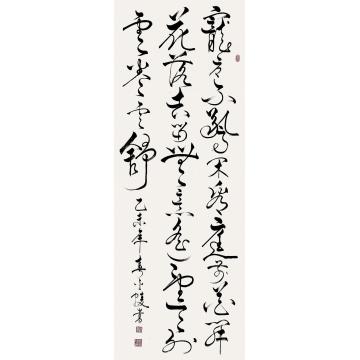 寵辱不驚閑看庭前花開
花落去留無意外
雲卷雲舒
乙未年春書